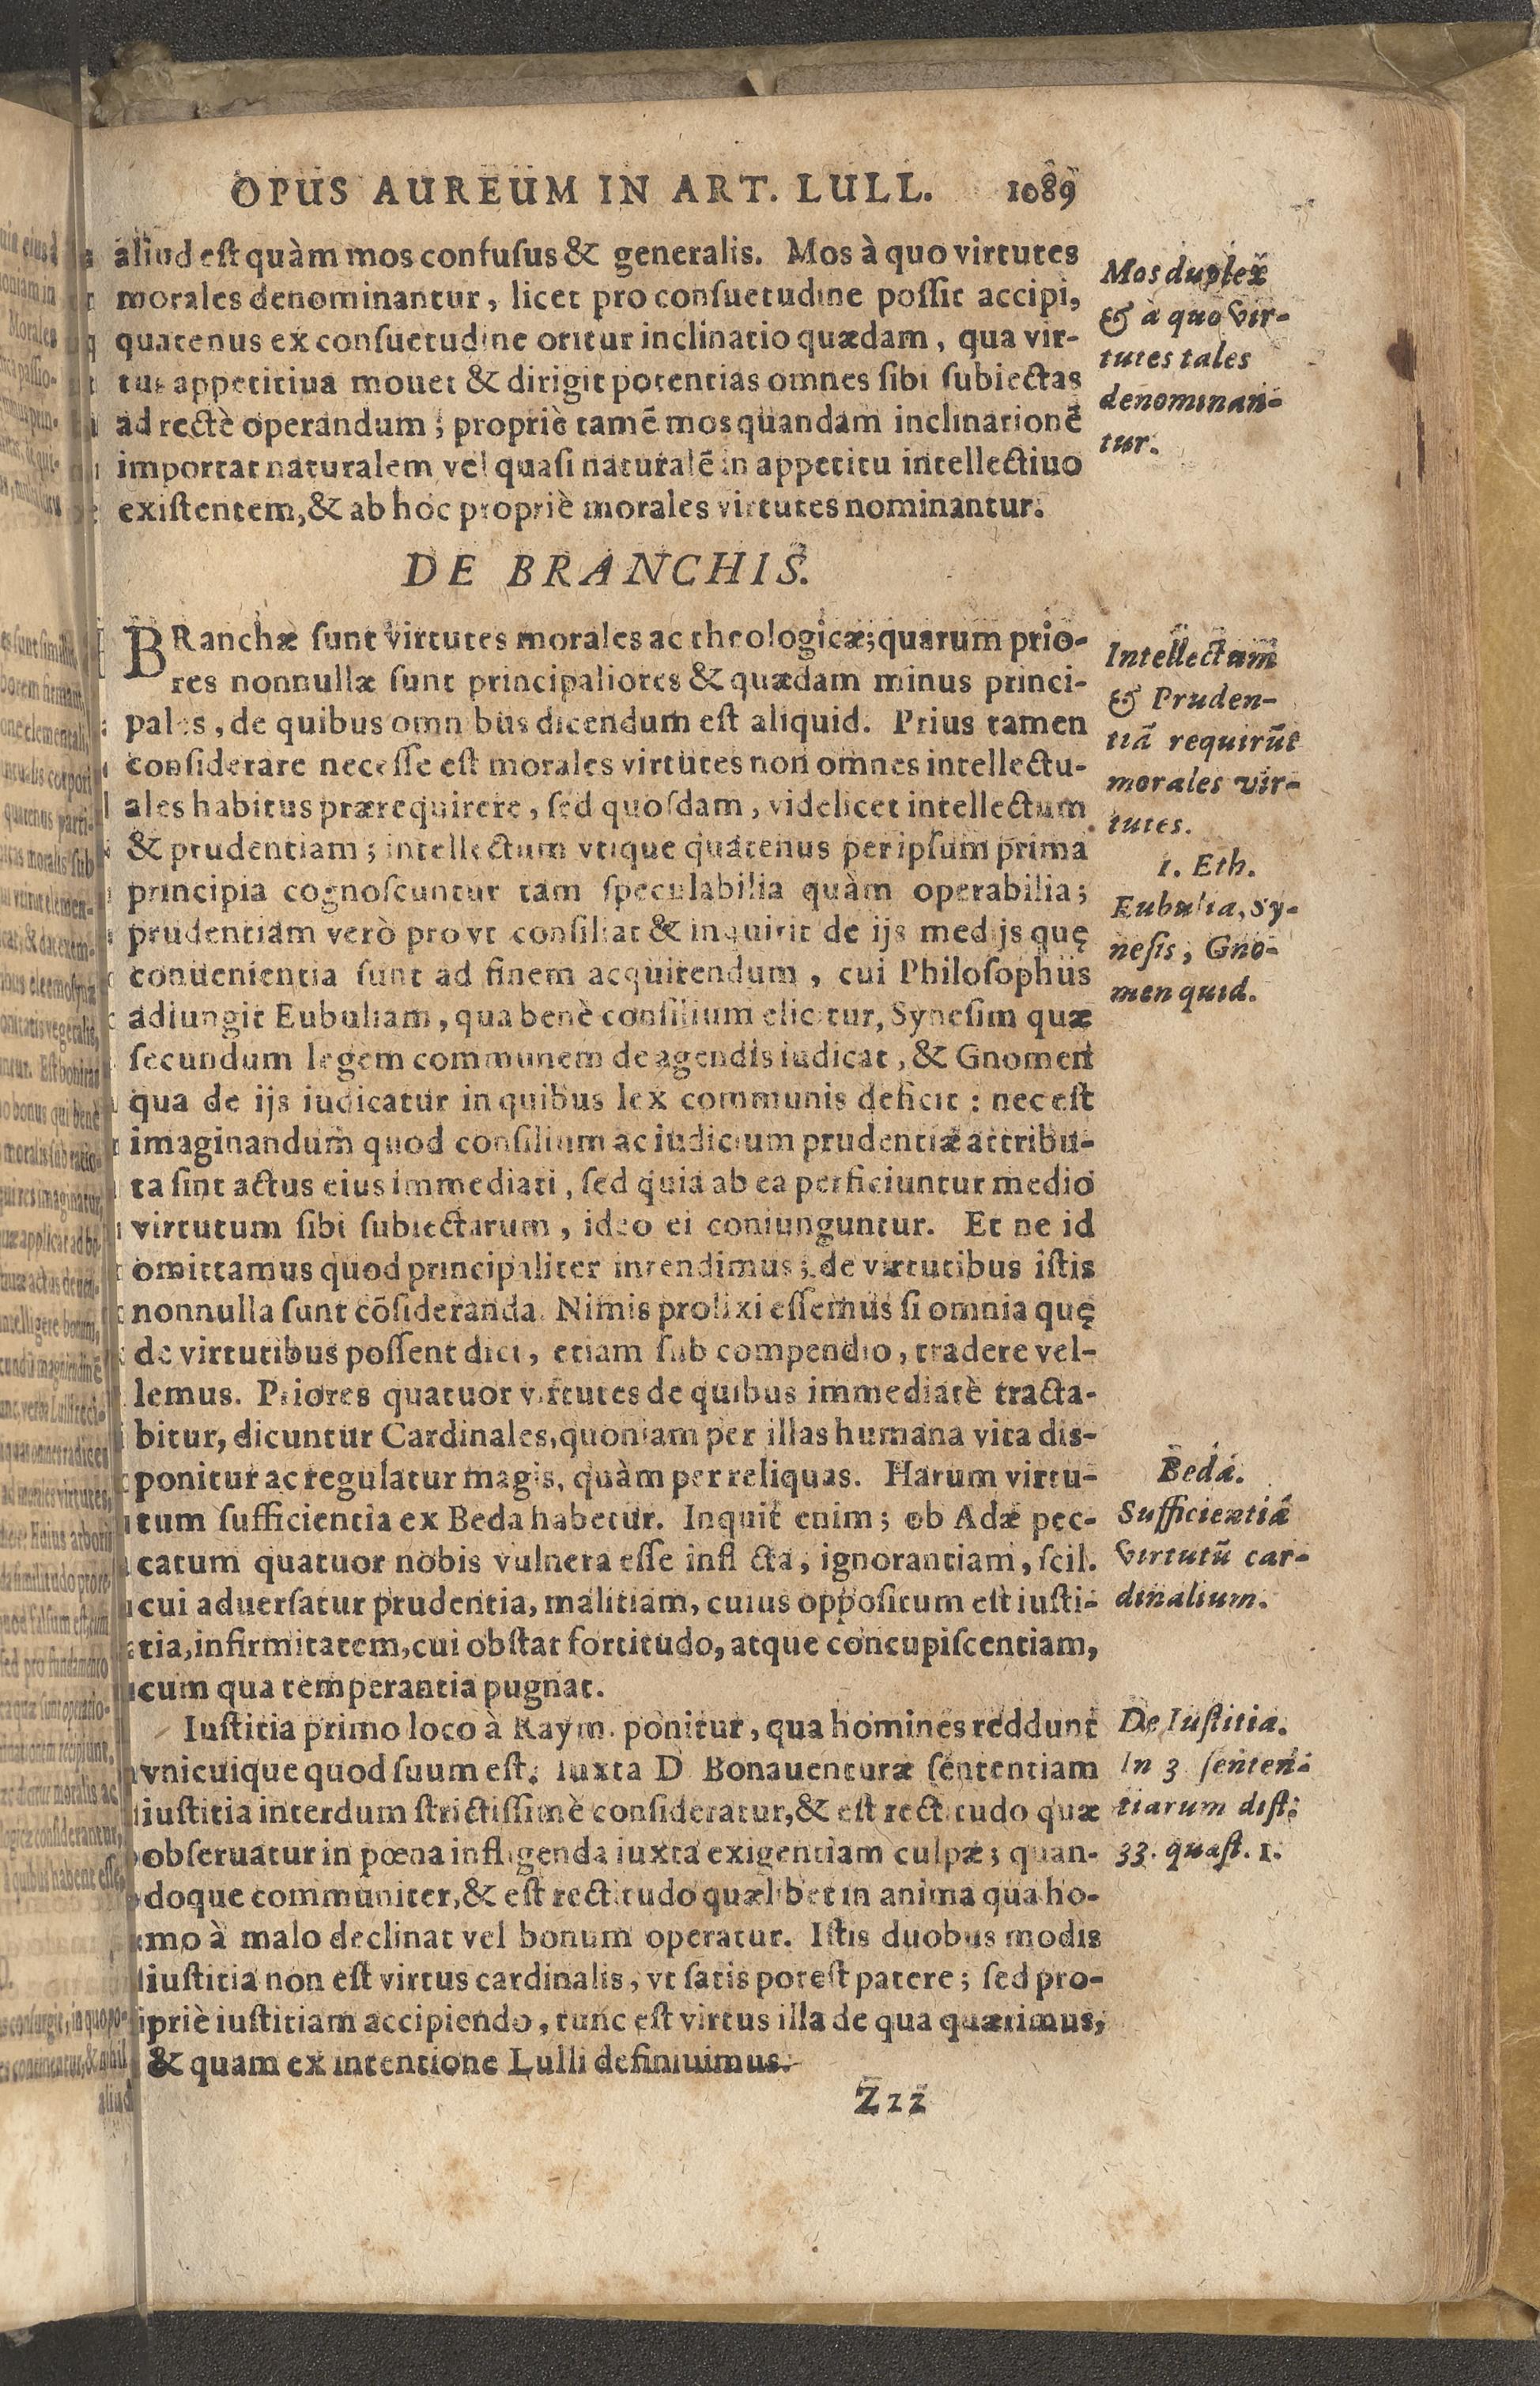 OPUS AUREUM IN ART. LULL. 1089
aliud est quàm mos confusus & generalis. Mos à quo virtutes
morales denominantur, licet pro consuetudine possit accipi,
quatenus ex consuetudine oritur inclinatio quædam, qua vir-
tus appetitiua mouet & dirigit potentias omnes sibi subiectas
ad rectè operandum; propriè tamẽ mos quandam inclinationẽ
importat naturalem vel quasi naturalẽ in appetitu intellectiuo
existentem, & ab hoc propriè morales virtutes nominantur.
Mos duplex
& à quo vir-
tutes tales
denominan-
tur.
DE BRANCHIS.
BRanchæ sunt virtutes morales ac theologicæ; quarum prio-
res nonnullæ sunt principaliores & quædam minus princi-
pales, de quibus omnibus dicendum est aliquid. Prius tamen
considerare necesse est morales virtutes non omnes intellectu-
ales habitus prærequirere, sed quosdam, videlicet intellectum
& prudentiam; intellectum vtique quatenus per ipsum prima
principia cognoscuntur tam speculabilia quàm operabilia;
prudentiam verò pro vt consiliat & inquirit de ijs medijs quę
conuenientia sunt ad finem acquirendum, cui Philosophus
adiungit Eubuliam, qua benè consilium elicitur, Synesim quæ
secundum legem communem de agendis iudicat, & Gnomen
qua de ijs iudicatur in quibus lex communis deficit: nec est
imaginandum quod consilium ac iudicium prudentiæ attribu-
ta sint actus eius immediati, sed quia ab ea perficiuntur medio
virtutum sibi subiectarum, ideo ei coniunguntur. Et ne id
omittamus quod principaliter intendimus; de virtutibus istis
nonnulla sunt cõsideranda. Nimis prolixi essemus si omnia quę
de virtutibus possent dici, etiam sub compendio, tradere vel-
lemus. Priores quatuor virtutes de quibus immediatè tracta-
bitur, dicuntur Cardinales, quoniam per illas humana vita dis-
ponitur ac regulatur magis, quàm per reliquas. Harum virtu-
tum sufficientia ex Beda habetur. Inquit enim; ob Adæ pec-
catum quatuor nobis vulnera esse inflicta, ignorantiam, scil.
cui aduersatur prudentia, malitiam, cuius oppositum est iusti-
tia, infirmitatem, cui obstat fortitudo, atque concupiscentiam,
cum qua temperantia pugnat.
Intellectum
& Pruden-
tiã requirũt
morales vir-
tutes.
1. Eth.
Eubulia, Sy-
nesis, Gno-
men quid.
Beda.
Sufficientia
virtutũ car-
dinalium.
Iustitia primo loco à Raym. ponitur, qua homines reddunt
vnicuique quod suum est. Iuxta D. Bonauenturæ sententiam
iustitia interdum strictissimè consideratur, & est rectitudo quæ
obseruatur in pœna infligenda iuxta exigentiam culpæ; quan-
doque communiter, & est rectitudo quælibet in anima qua ho-
mo à malo declinat vel bonum operatur. Istis duobus modis
iustitia non est virtus cardinalis, vt satis potest patere; sed pro-
priè iustitiam accipiendo, tunc est virtus illa de qua quærimus,
& quam ex intentione Lulli definiuimus.
De Iustitia.
In 3 senten-
tiarum dist.
33. quæst. 1.
Zzz